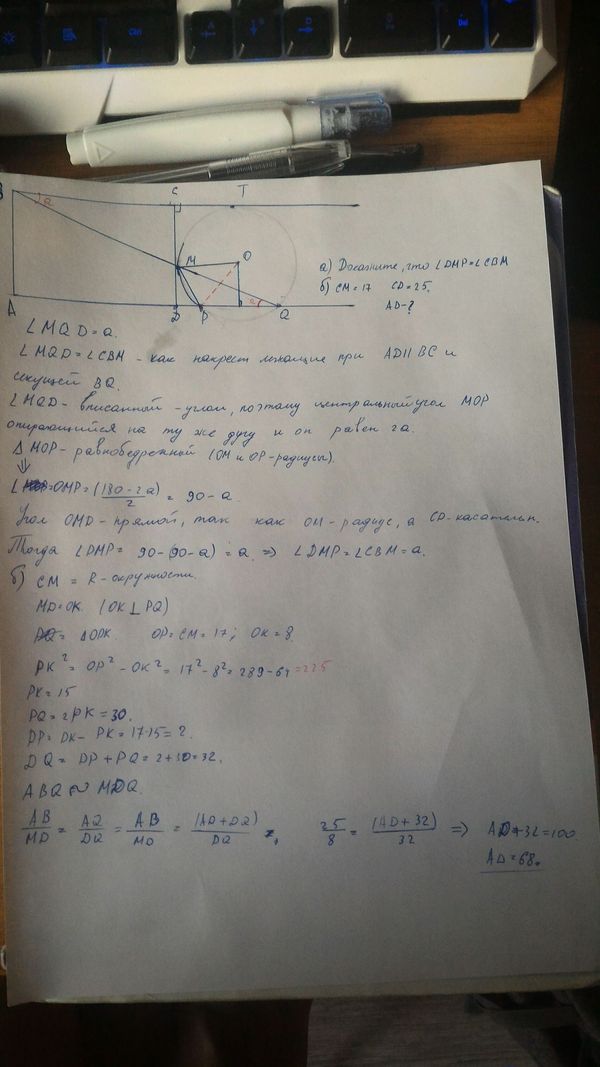 B C T
a
M O
а) Докажите, что ∠DMP=∠CBM
б) CM=17 CD=25.
AD-?
A D P Q
a
∠MQD=a.
∠MQD=∠CBM - как накрест лежащие при AD||BC и
секущей BQ.
∠MQD- вписанный -углом, поэтому центральный угол MOP
опирающийся на ту же дугу и он равен 2a.
Δ MOP- равнобедренный (OM и OP-радиусы).
⇓
∠OMP=(180-2a)/2 = 90-a.
Угол OMD-прямой, так как OM-радиус, а CD-касательн.
Тогда ∠DMP= 90-(90-a)=a => ∠DMP=∠CBM=a.
б) CM = R-окружности.
MD=OK. (OK⊥PQ)
ΔOPK. OP=CM=17; OK=8
PK²= OP²-OK²= 17²-8²=289-64=225
PK=15
PQ=2PK=30.
DP=DK- PK=17-15=2.
DQ= DP+PQ=2+30=32.
ABQ ~ MDQ.
AB/MD = AQ/DQ = AB/MD = (AD+DQ)/DQ 25/8 = (AD+32)/32 => AD+32=100
AD=68.